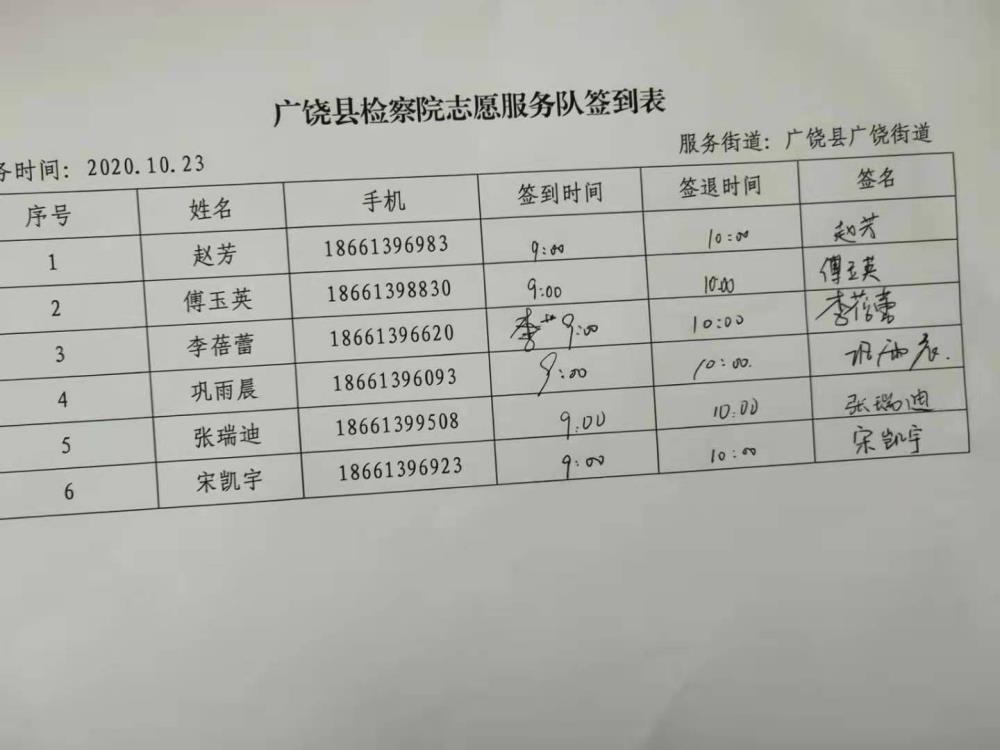 广饶县检察院志愿服务队签到表
务时间：2020.10.23 服务街道：广饶县广饶街道
序号 姓名 手机 签到时间 签退时间 签名
1 赵芳 18661396983 9:00 10:00 赵芳
2 傅玉英 18661398830 9:00 10:00 傅玉英
3 李蓓蕾 18661396620 李 9:00 10:00 李蓓蕾
4 巩雨晨 18661396093 9:00 10:00. 巩雨辰.
5 张瑞迪 18661399508 9.00 10.00 张瑞迪
6 宋凯宇 18661396923 9:00 10:00 宋凯宇